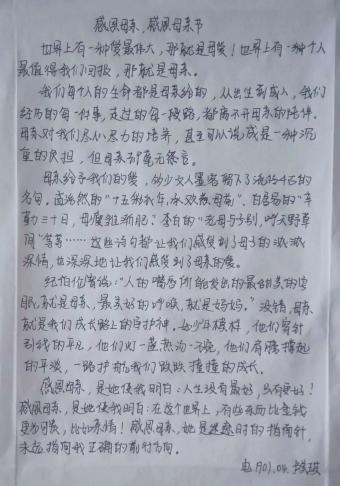 感恩母亲,感恩母亲节
世界上有一种爱最伟大,那就是母爱!世界上有一种个人
最值得我们回报,那就是母亲。
我们每个人的生命都是母亲给的,从出生到成人,我们
经历的每一件事,走过的每一段路,都离不开母亲的陪伴。
母亲对我们尽心尽力的培养,甚至可以说成是一种沉
重的负担,但母亲却毫无怨言。
母亲给予我们的爱,幼少文人墨客留下了流传千古的
名句。孟浩然的"十五彩衣年,承欢慈母前"、白居易的"辛
勤三十日,母瘦雏渐肥"、李白的"老母与子别,呼天野草
间"等等……这些诗句都让我们感受到了母子的
深情,也深深地让我们感受到了母亲的爱。
纪伯伦曾说:"人的嘴唇所能发出的最甜美的字
眼,就是母亲,最美好的呼唤,就是妈妈。"没错,母亲
就是我们成长路上的守护神。她们穿针
引线的平凡,他们灯一盏热汤一碗,他们有
的平淡,一路护航我们跌跌撞撞的成长。
感恩母亲,是她使我明白:人生没有最好,只有更好!
感恩母亲,是她使我明白:在这个世界上,有些东西比金钱
更为可贵,比如亲情!感恩母亲,她是迷途时的指南针,
永远指向我正确的前行方向。
电1701.04.